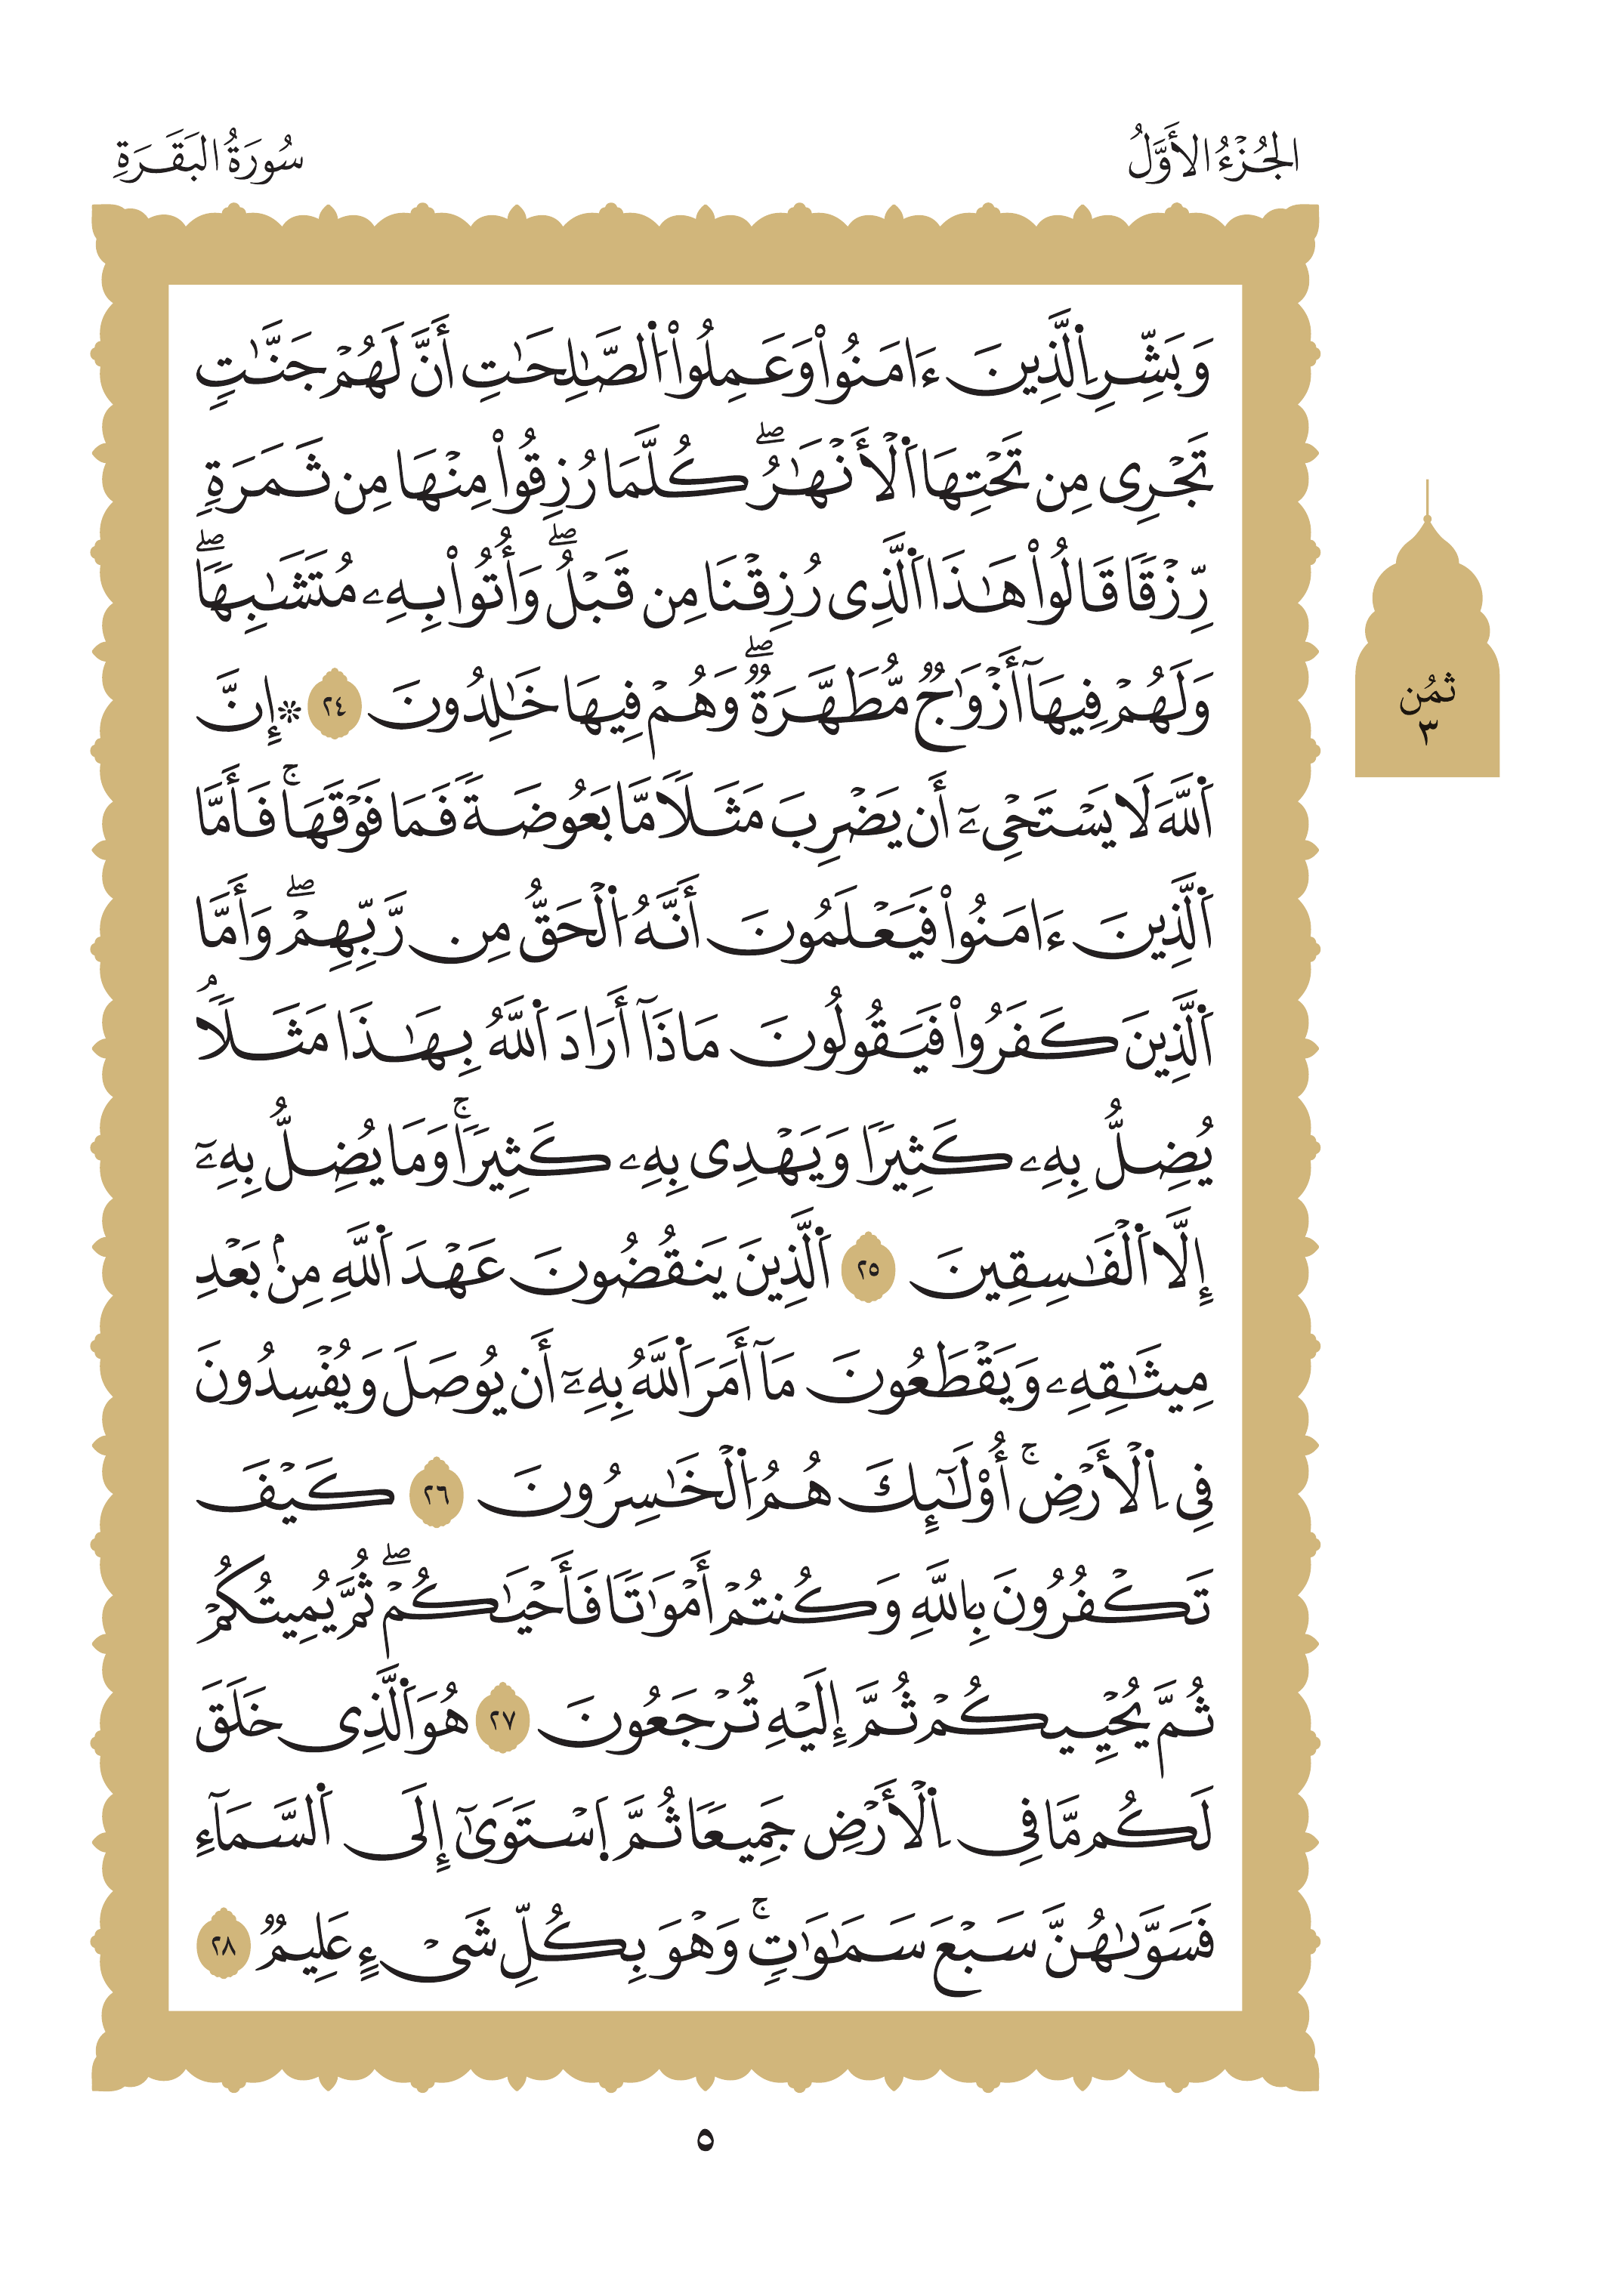 الجُزْءُ الأَوَّلُ
سُورَةُ البَقَرَةِ
وَبَشِّرِ اِ۬لَّذِينَ ءَامَنُواْ وَعَمِلُواْ اُ۬لصَّٰلِحَٰتِ أَنَّ لَهُمْ جَنَّٰتٖ
تَجْرِى مِن تَحْتِهَا اَ۬لْأَنْهَٰرُۖ كُلَّمَا رُزِقُواْ مِنْهَا مِن ثَمَرَةٖ
رِّزْقٗا قَالُواْ هَٰذَا اَ۬لَّذِى رُزِقْنَا مِن قَبْلُۖ وَأُتُواْ بِهِۦ مُتَشَٰبِهٗاۖ
وَلَهُمْ فِيهَآ أَزْوَٰجٞ مُّطَهَّرَةٞۖ وَهُمْ فِيهَا خَٰلِدُونَ ٢٤ ۞ إِنَّ
اَ۬للَّهَ لَا يَسْتَحْىِۦٓ أَن يَضْرِبَ مَثَلٗا مَّا بَعُوضَةٗ فَمَا فَوْقَهَاۚ فَأَمَّا
اَ۬لَّذِينَ ءَامَنُواْ فَيَعْلَمُونَ أَنَّهُ اُ۬لْحَقُّ مِن رَّبِّهِمْۖ وَأَمَّا
اَ۬لَّذِينَ كَفَرُواْ فَيَقُولُونَ مَاذَآ أَرَادَ اَ۬للَّهُ بِهَٰذَا مَثَلٗاۘ
يُضِلُّ بِهِۦ كَثِيرٗا وَيَهْدِى بِهِۦ كَثِيرٗاۚ وَمَا يُضِلُّ بِهِۦٓ
إِلَّا اَ۬لْفَٰسِقِينَ ٢٥ اَ۬لَّذِينَ يَنقُضُونَ عَهْدَ اَ۬للَّهِ مِنۢ بَعْدِ
مِيثَٰقِهِۦ وَيَقْطَعُونَ مَآ أَمَرَ اَ۬للَّهُ بِهِۦٓ أَن يُوصَلَ وَيُفْسِدُونَ
فِى اِ۬لْأَرْضِۚ أُوْلَٰٓئِكَ هُمُ اُ۬لْخَٰسِرُونَ ٢٦ كَيْفَ
تَكْفُرُونَ بِاللَّهِ وَكُنتُمْ أَمْوَٰتٗا فَأَحْيَٰكُمْۖ ثُمَّ يُمِيتُكُمْ
ثُمَّ يُحْيِيكُمْ ثُمَّ إِلَيْهِ تُرْجَعُونَ ٢٧ هُوَ اَ۬لَّذِى خَلَقَ
لَكُم مَّا فِى اِ۬لْأَرْضِ جَمِيعٗا ثُمَّ اَ۪سْتَوَىٰٓ إِلَى اَ۬لسَّمَآءِ
فَسَوَّىٰهُنَّ سَبْعَ سَمَٰوَٰتٖۚ وَهْوَ بِكُلِّ شَىْءٍ عَلِيمٞ ٢٨
ثُمُن
٣
٥